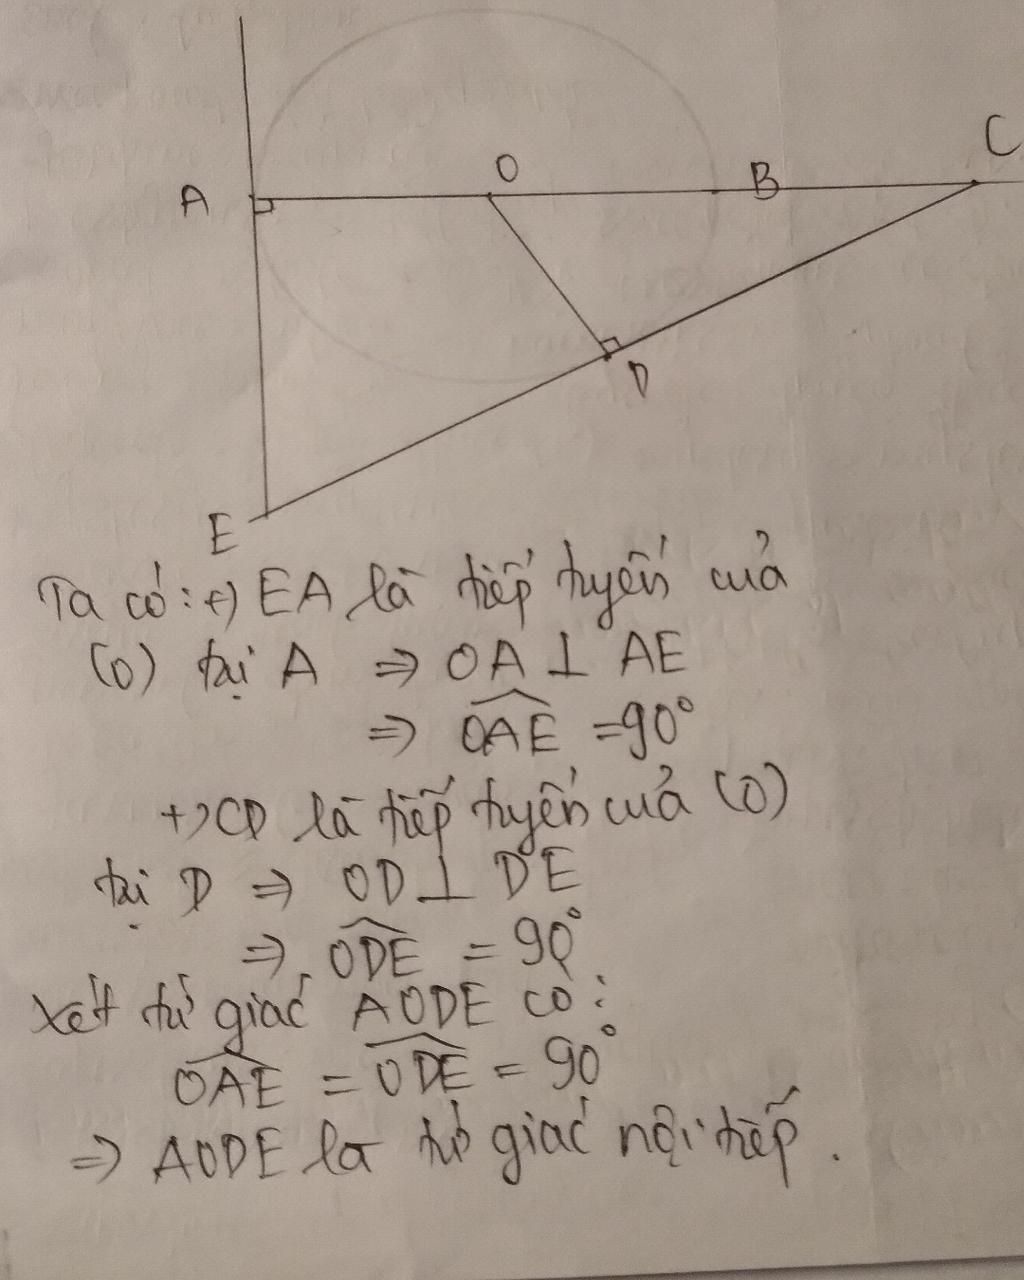 O
C
A
B
D
E
Ta có: +) EA là tiếp tuyến của
(O) tại A ⇒ OA ⊥ AE
⇒ \widehat{OAE} = 90°
+) CD là tiếp tuyến của (O)
tại D ⇒ OD ⊥ DE
⇒ \widehat{ODE} = 90°
Xét tứ giác AODE có:
\widehat{OAE} = \widehat{ODE} = 90°
⇒ AODE là tứ giác nội tiếp.